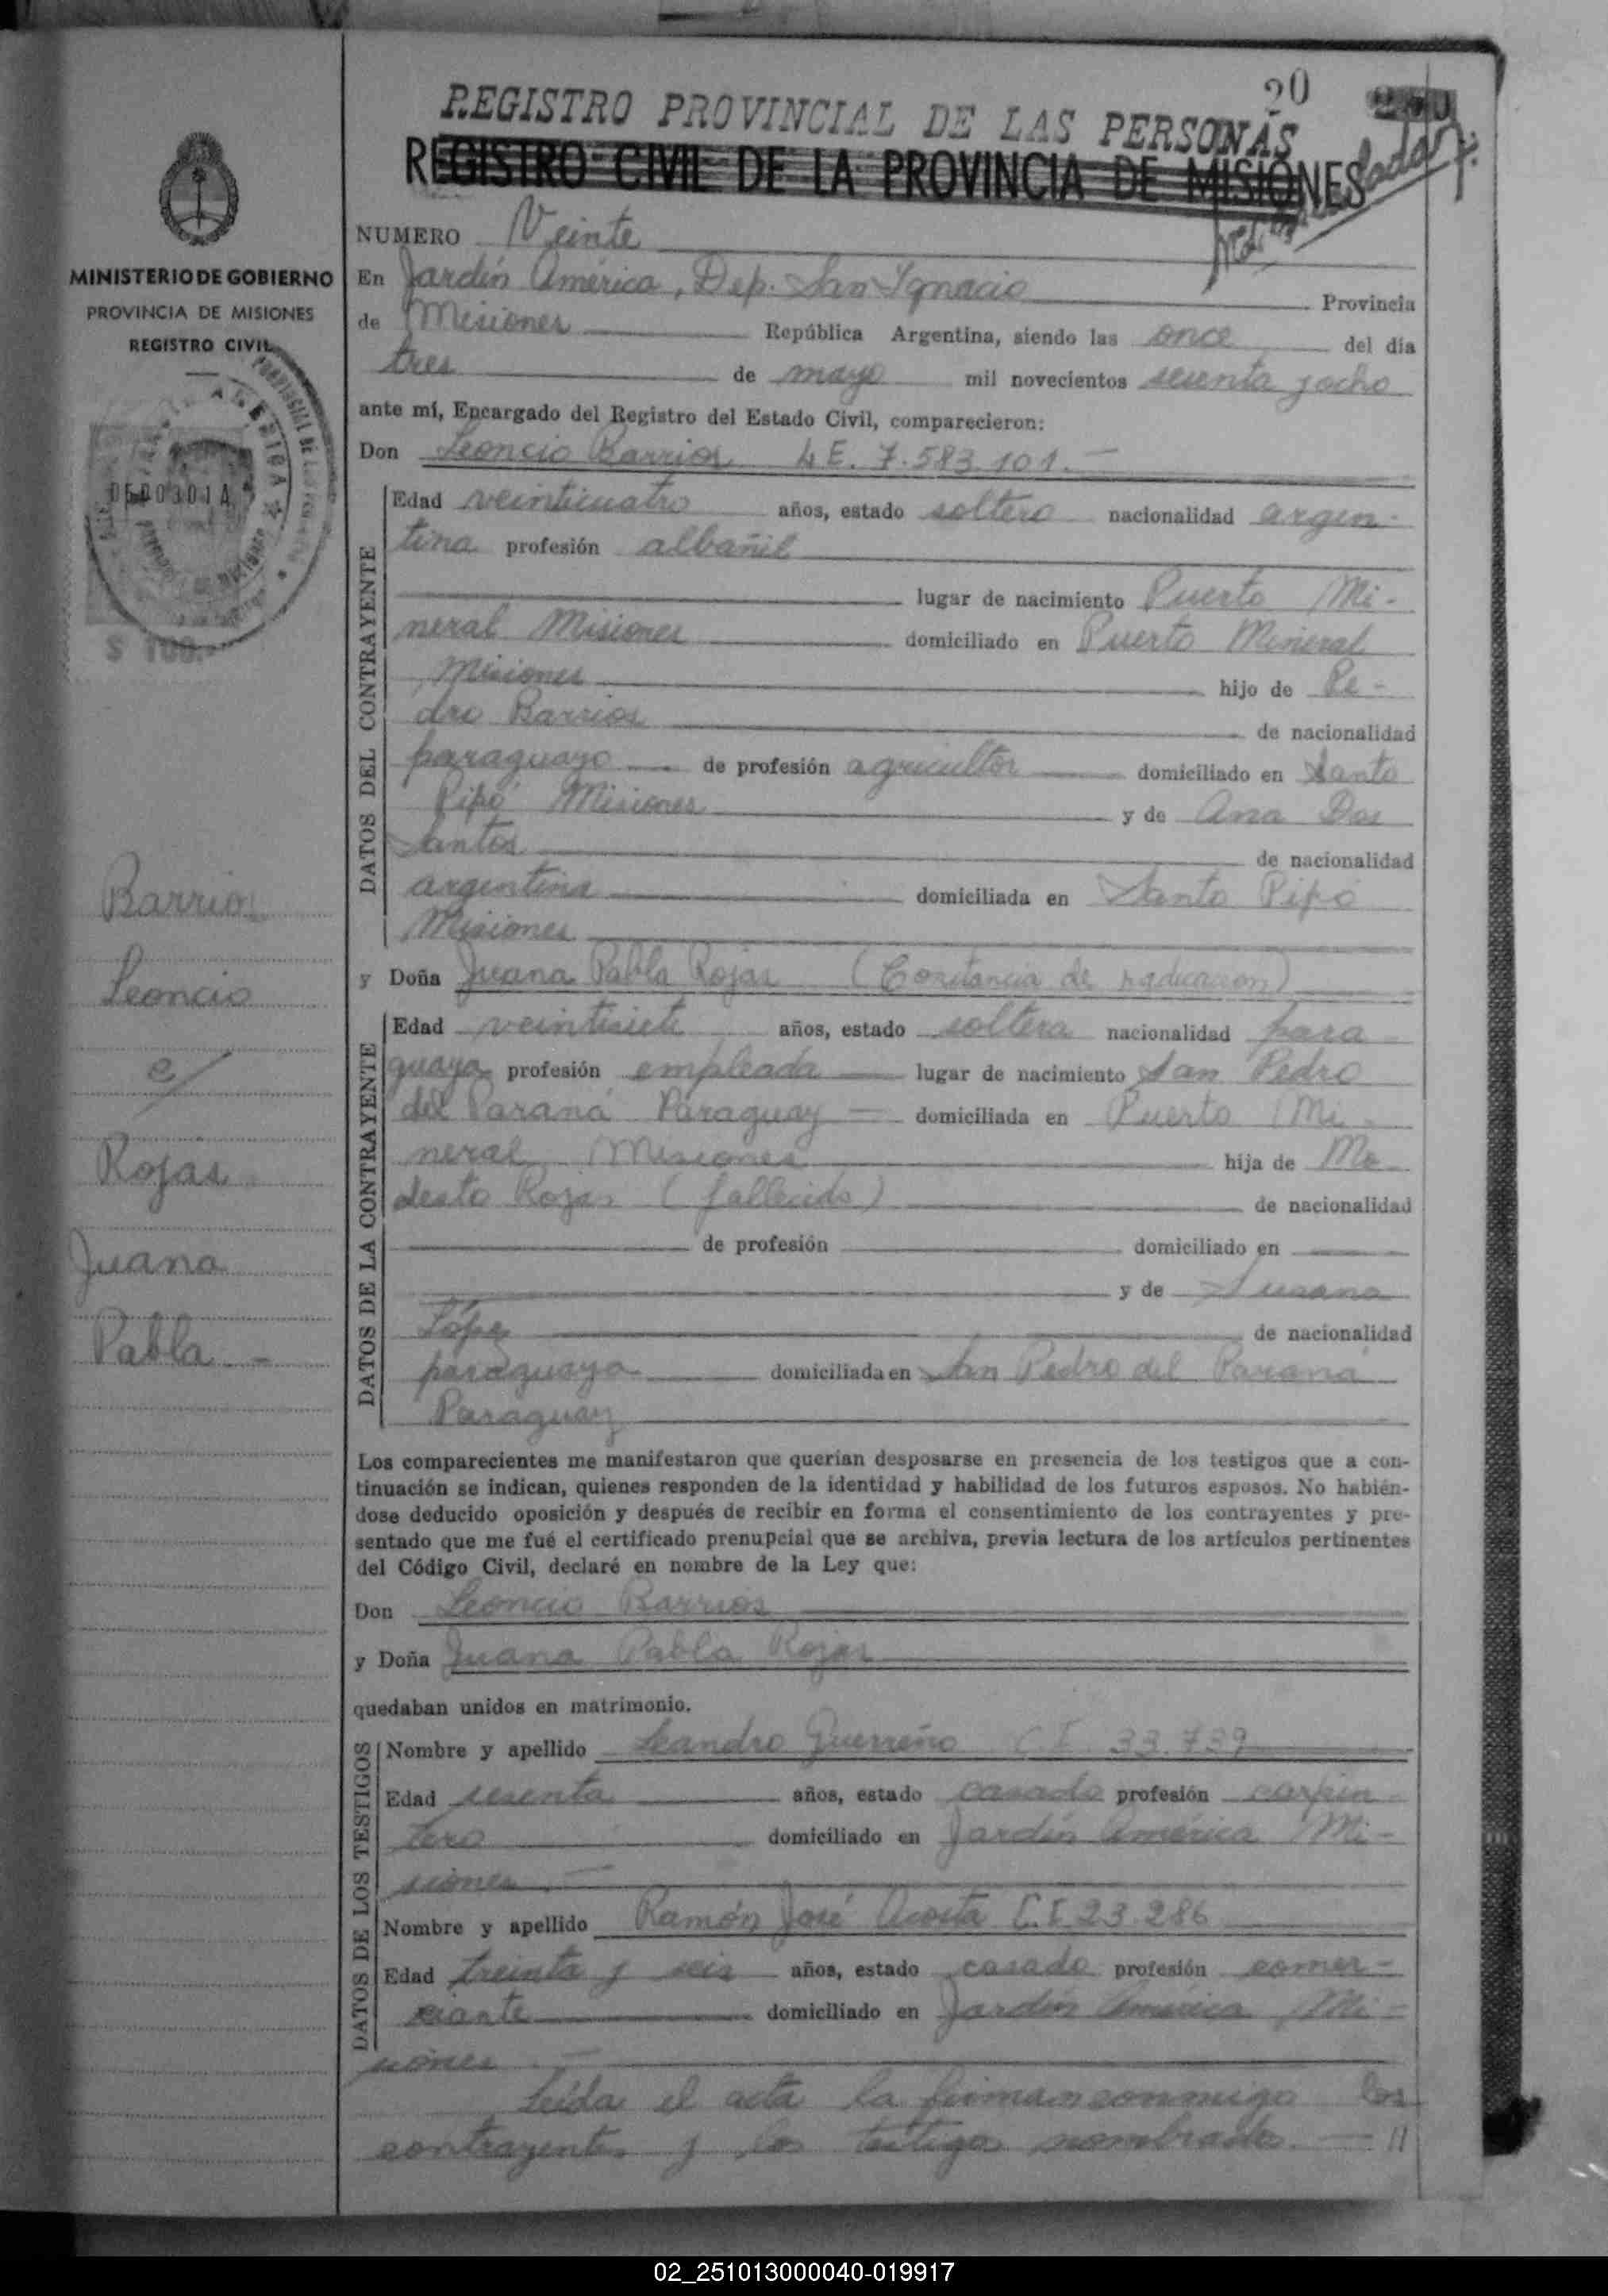 20
REGISTRO PROVINCIAL DE LAS PERSONAS
REGISTRO CIVIL DE LA PROVINCIA DE MISIONES
MINISTERIO DE GOBIERNO
PROVINCIA DE MISIONES
REGISTRO CIVIL
0500301A
$ 100.-
Barrios
Leoncio
c/
Rojas
Juana
Pabla -
NUMERO Veinte
En Jardín América, Dep. San Ignacio Provincia
de Misiones República Argentina, siendo las once del día
tres de mayo mil novecientos sesenta y ocho
ante mí, Encargado del Registro del Estado Civil, comparecieron:
Don Leoncio Barrios L E. 7.583.101.-
DATOS DEL CONTRAYENTE
Edad veinticuatro años, estado soltero nacionalidad argen-
tina profesión albañil
lugar de nacimiento Puerto Mi-
neral Misiones domiciliado en Puerto Mineral
, Misiones hijo de Pe-
dro Barrios de nacionalidad
paraguayo de profesión agricultor domiciliado en Santo
Pipó Misiones y de Ana Dos
Santos de nacionalidad
argentina domiciliada en Santo Pipó
Misiones
y Doña Juana Pabla Rojas (Constancia de radicación)
DATOS DE LA CONTRAYENTE
Edad veintisiete años, estado soltera nacionalidad para-
guaya profesión empleada lugar de nacimiento San Pedro
del Paraná Paraguay domiciliada en Puerto Mi-
neral, Misiones hija de Mo
desto Rojas (fallecido) de nacionalidad
de profesión domiciliado en
y de Susana
López de nacionalidad
paraguaya domiciliada en San Pedro del Paraná
Paraguay
Los comparecientes me manifestaron que querían desposarse en presencia de los testigos que a con-
tinuación se indican, quienes responden de la identidad y habilidad de los futuros esposos. No habién-
dose deducido oposición y después de recibir en forma el consentimiento de los contrayentes y pre-
sentado que me fué el certificado prenupcial que se archiva, previa lectura de los artículos pertinentes
del Código Civil, declaré en nombre de la Ley que:
Don Leoncio Barrios
y Doña Juana Pabla Rojas
quedaban unidos en matrimonio.
DATOS DE LOS TESTIGOS
Nombre y apellido Leandro Guerreño C.I. 33.739
Edad sesenta años, estado casado profesión carpin-
tero domiciliado en Jardín América Mi-
siones.-
Nombre y apellido Ramón José Acosta C.I 23.286
Edad treinta y seis años, estado casado profesión comer-
ciante domiciliado en Jardín América, Mi-
siones.-
Leída el acta la firman conmigo los
contrayentes y los testigos nombrados. - //
02_251013000040-019917